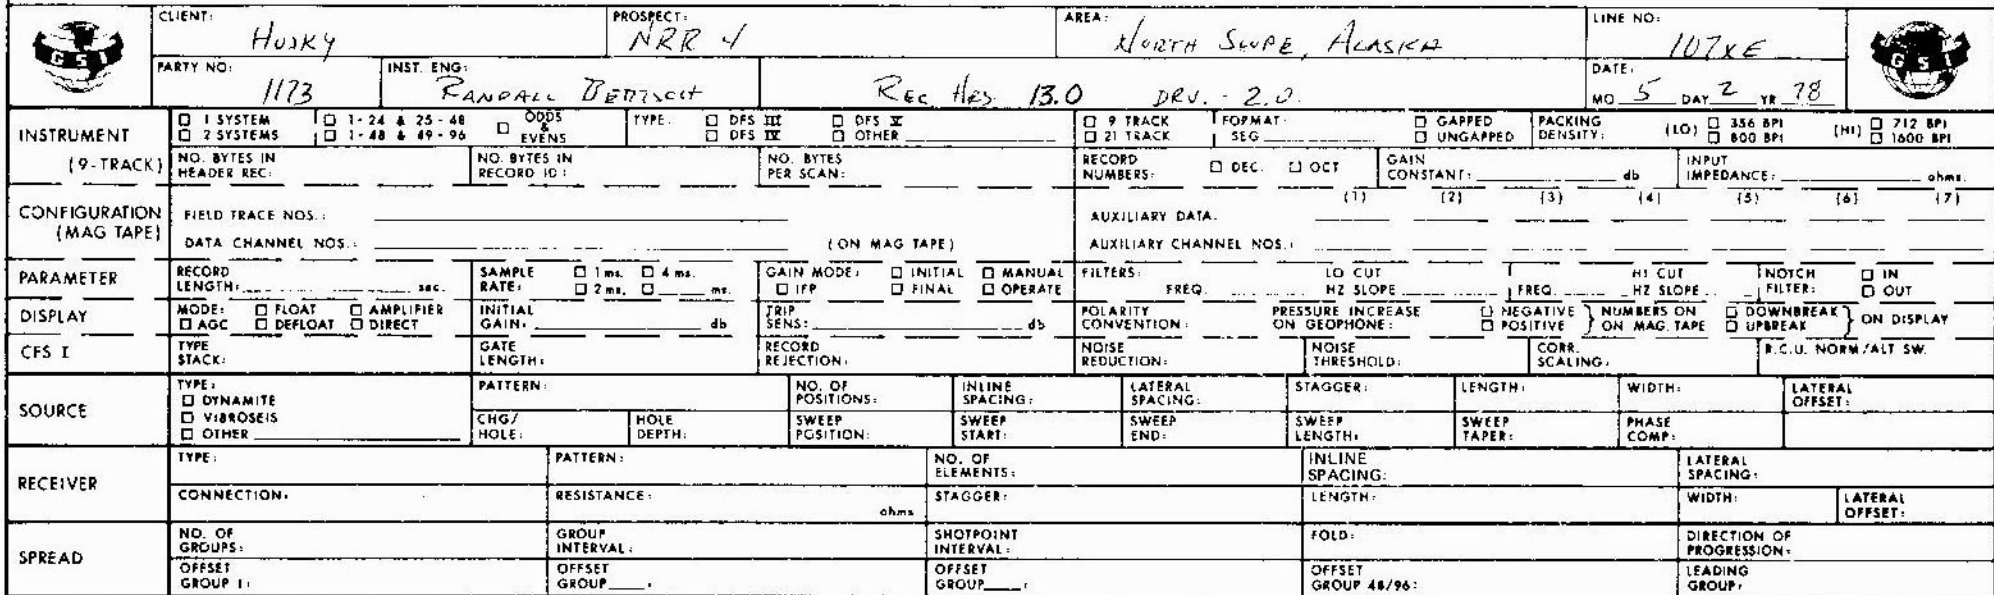 CLIENT: Husky PROSPECT: NRR 4 AREA: North Slope, Alaska LINE NO: 107XE
GSI GSI
PARTY NO: 1173 INST. ENG: Randall Bertsch Rec Hrs. 13.0 DRV. - 2.0 DATE: MO 5 DAY 2 YR 78
INSTRUMENT (9-TRACK) ☐ 1 SYSTEM ☐ 1-24 & 25-48 ☐ ODDS & EVENS TYPE: ☐ DFS III ☐ DFS V ☐ 9 TRACK FORMAT: ☐ GAPPED PACKING DENSITY: (LO) ☐ 356 BPI (HI) ☐ 712 BPI
☐ 2 SYSTEMS ☐ 1-48 & 49-96 ☐ DFS IV ☐ OTHER ☐ 21 TRACK SEG ☐ UNGAPPED ☐ 800 BPI ☐ 1600 BPI
NO. BYTES IN HEADER REC: NO. BYTES IN RECORD ID: NO. BYTES PER SCAN: RECORD NUMBERS: ☐ DEC. ☐ OCT GAIN CONSTANT: db INPUT IMPEDANCE: ohms.
CONFIGURATION (MAG TAPE) FIELD TRACE NOS.: AUXILIARY DATA. (1) (2) (3) (4) (5) (6) (7)
DATA CHANNEL NOS.: (ON MAG TAPE) AUXILIARY CHANNEL NOS.:
PARAMETER RECORD LENGTH: sec. SAMPLE RATE: ☐ 1 ms. ☐ 4 ms. ☐ 2 ms. ☐ ms. GAIN MODE: ☐ INITIAL ☐ MANUAL ☐ IFP ☐ FINAL ☐ OPERATE FILTERS: FREQ. LO CUT HZ SLOPE FREQ HI CUT HZ SLOPE NOTCH FILTER: ☐ IN ☐ OUT
DISPLAY MODE: ☐ FLOAT ☐ AMPLIFIER ☐ AGC ☐ DEFLOAT ☐ DIRECT INITIAL GAIN: db TRIP SENS: db POLARITY CONVENTION: PRESSURE INCREASE ON GEOPHONE: ☐ NEGATIVE ☐ POSITIVE } NUMBERS ON ON MAG. TAPE ☐ DOWNBREAK ☐ UPBREAK } ON DISPLAY
CFS I TYPE STACK: GATE LENGTH: RECORD REJECTION: NOISE REDUCTION: NOISE THRESHOLD: CORR. SCALING: R.C.U. NORM/ALT SW.
SOURCE TYPE: ☐ DYNAMITE ☐ VIBROSEIS ☐ OTHER PATTERN: NO. OF POSITIONS: INLINE SPACING: LATERAL SPACING: STAGGER: LENGTH: WIDTH: LATERAL OFFSET:
CHG/ HOLE: HOLE DEPTH: SWEEP POSITION: SWEEP START: SWEEP END: SWEEP LENGTH: SWEEP TAPER: PHASE COMP:
RECEIVER TYPE: PATTERN: NO. OF ELEMENTS: INLINE SPACING: LATERAL SPACING:
CONNECTION: RESISTANCE: ohms STAGGER: LENGTH: WIDTH: LATERAL OFFSET:
SPREAD NO. OF GROUPS: GROUP INTERVAL: SHOTPOINT INTERVAL: FOLD: DIRECTION OF PROGRESSION:
OFFSET GROUP 1: OFFSET GROUP : OFFSET GROUP : OFFSET GROUP 48/96: LEADING GROUP: